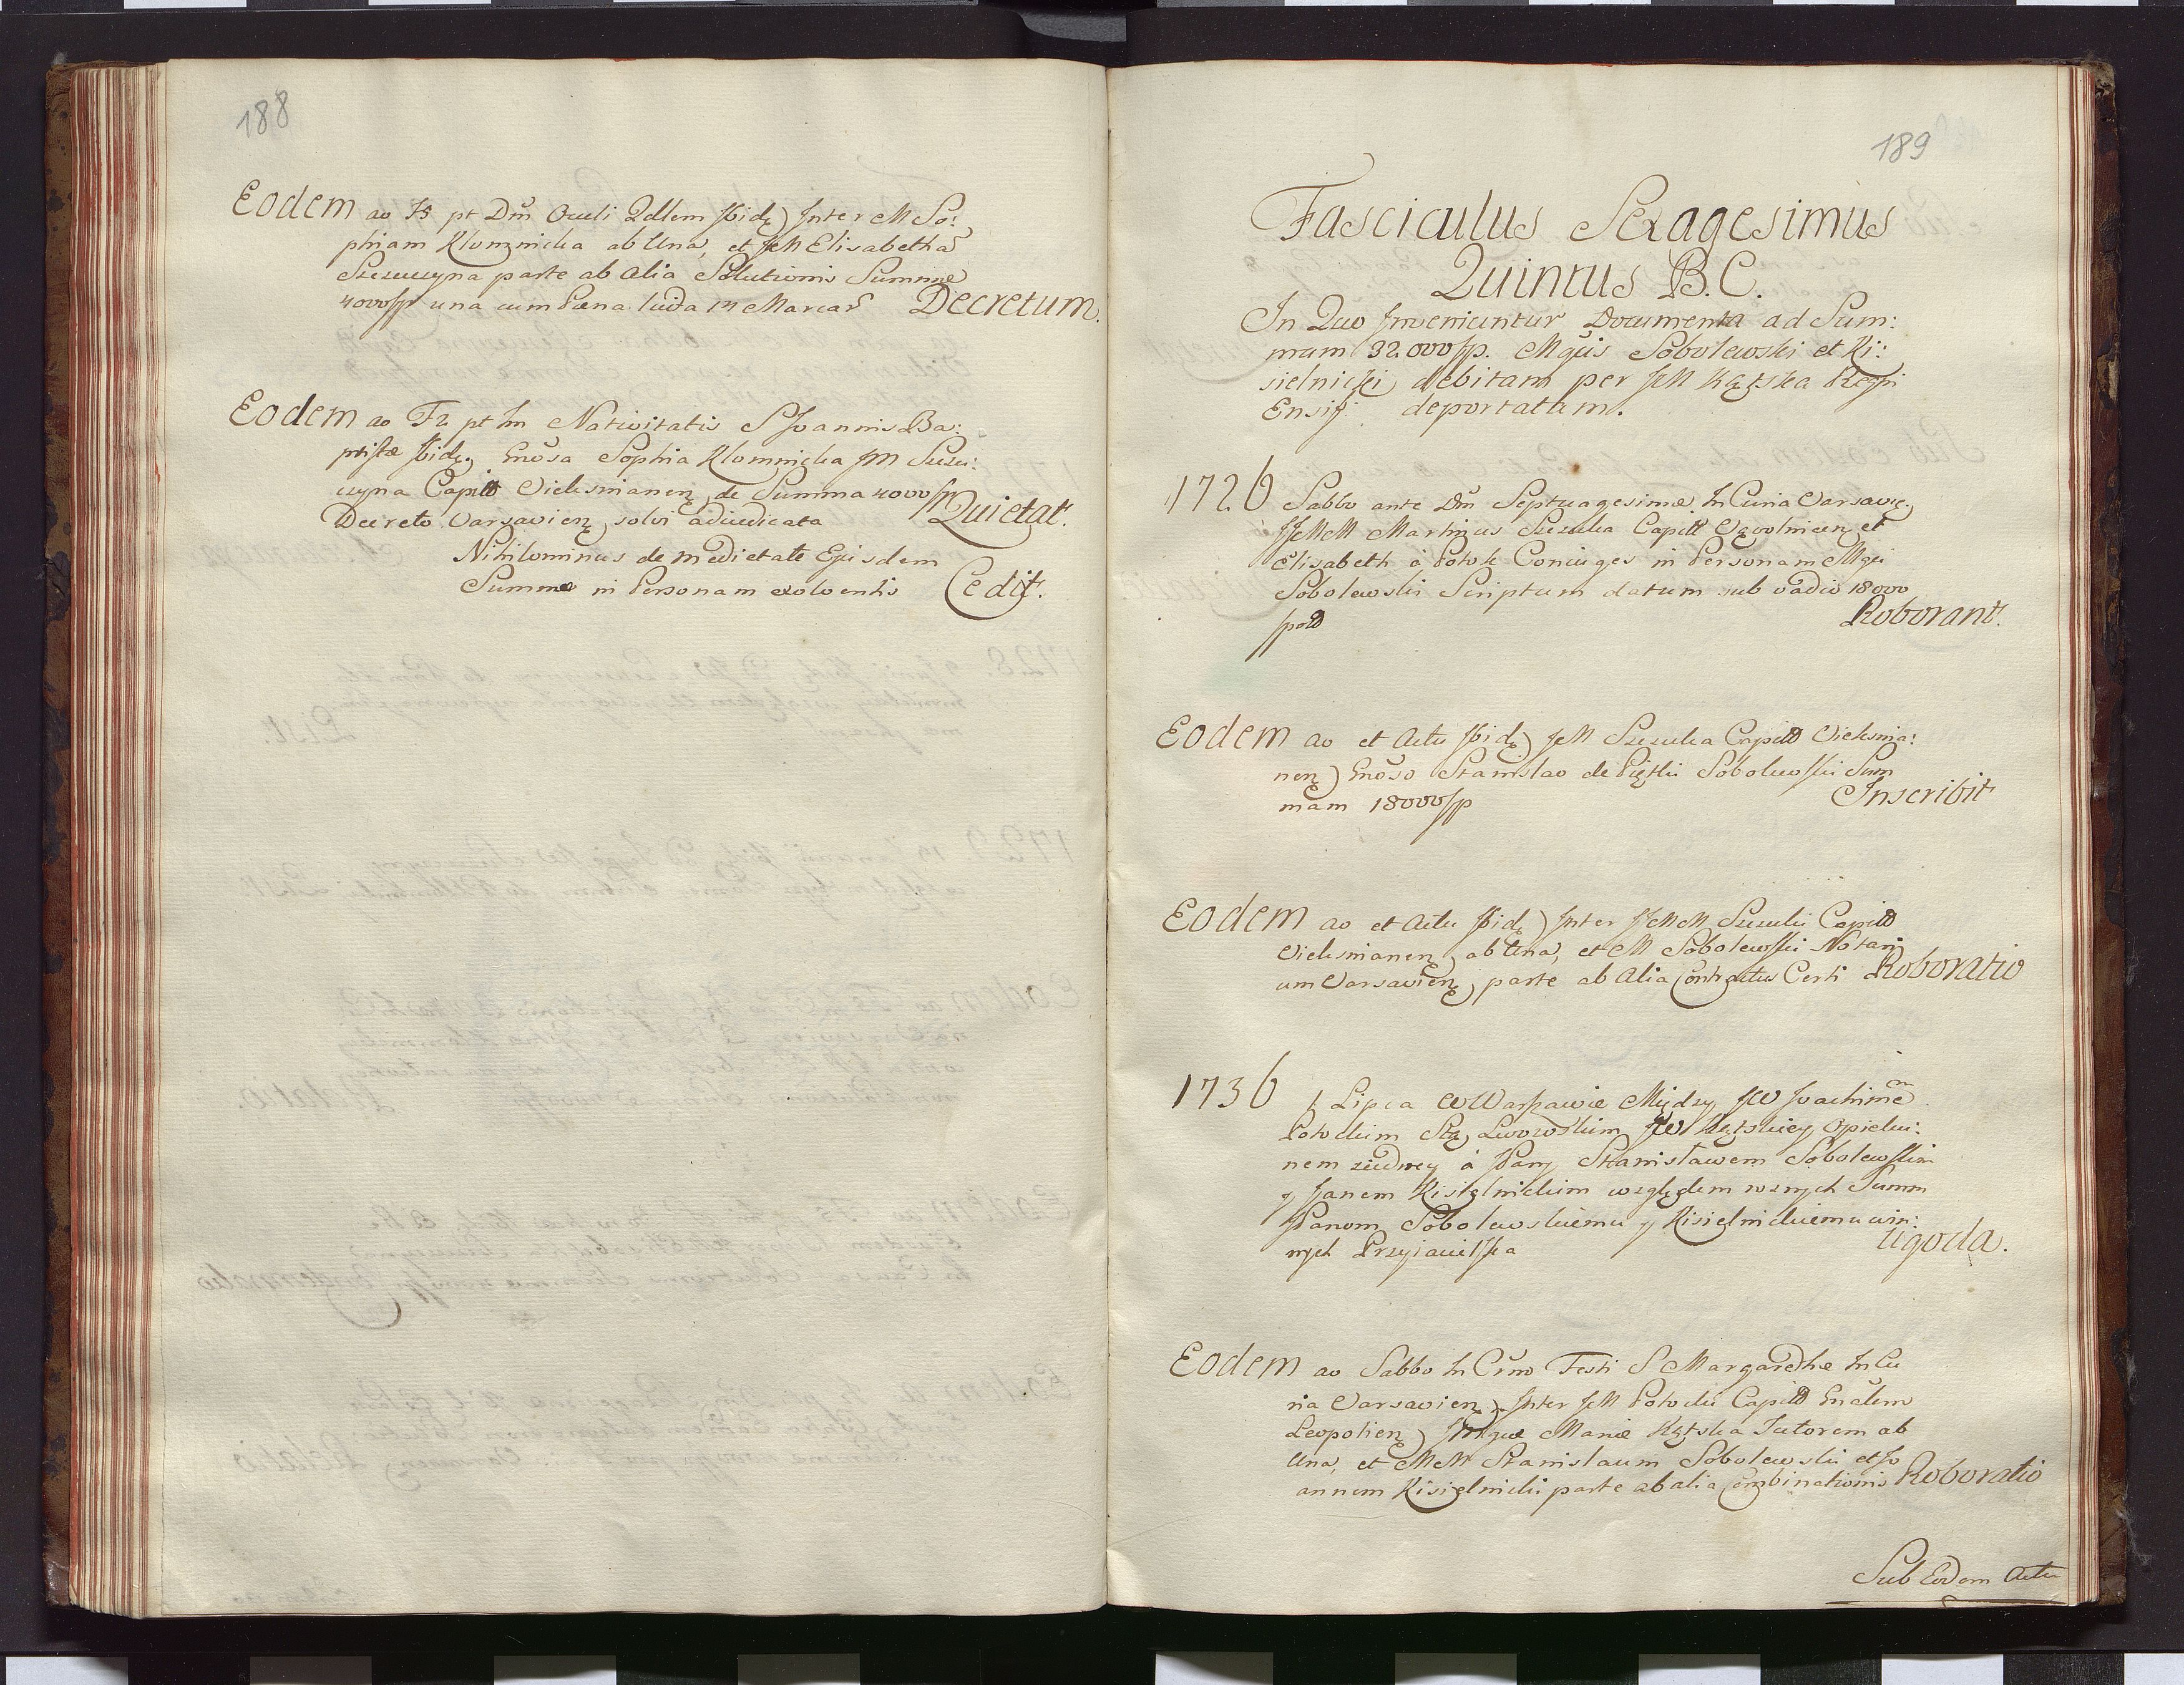 188
Eodem ao F5 pt Dm̃ Oculi Qdlem Ibidę) Inter M So:
phiam Klomnicka ab Una, et JM Elisabetha
Szczuczyna parte ab Alia Solutionis Summæ
4000 fp una cum Pæna luita 14 Marcar Decretum.
Eodem ao F2 pt fm Nativitatis S Joannis Ba:
ptistæ Ibidę. Gnosa Sophia Klomnicka JM Szczu:
czyna Capit Vielsmanenę de Summa 4000 fp
Decreto Varsavienę solvi adiudicata Quietat.
Nihilominus de medietate Ejusdem
Summæ in Personam exolventis Cedit.
189
Fasciculus Sexagesimus
Quintus B.C.
In Quo Inveniuntur Documenta ad Sum:
mam 32.000 fp. Mgcis Sobolewski et Ki:
sielnicki debitam per JM Kątska Regni
Ensif: deportatam.
1726 Sabbo ante Dm̃ Septuagesimæ In Curia Varsavię.
JJMM Martinus Szczuka Capit Wąwolnicen et
Elisabeth à Potok Coniuges in Personam Mgci
Sobolewski Scriptum datum sub vadio 18000
fpol Roborant.
Eodem ao et Actu Ibidę) JM Szczuka Capit Vielsma:
nenę) Gnoso Stanislao de Piętki Sobolewski Sum
mam 18000 fp Inscribit
Eodem ao et Actu Ibidę) Inter JJMM Szczuki Capit
Vielsmanenę ab Una, et M Sobolewski Notari
um Varsavienę, parte ab Alia Contractus Certi Roboratio
1736 1 Lipca w Warszawie Między JW Joachimē
Potockim Stą Lwowskim JW Kątskiey Opieku:
nem ziedney à JPany Stanisławem Sobolewskim
y Janem Kisielnickim względem roznych Summ
JPanom Sobolewskiemu y Kisielnickiemu win:
nych Przyiacielska ugoda.
Eodem ao Sabbo In Crño Festi S Margarethæ In Cu
ria Varsavienę). Inter JM Potocki Capit Gnalem
Leopolienę) Mgcæ Mariæ Kątska Tutorem ab
Una, et MM Stanislaum Sobolewski et Jo
annem Kisielnicki parte ab alia Combinationis Roboratio
Sub Eodem Actu